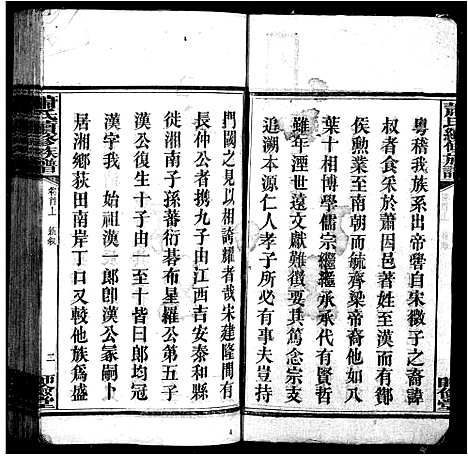 蕭氏續修族譜
粵稽我族系出帝嚳自宋微子之裔諱
叔者食采於蕭因邑著姓至漢而有酇
侯勲業至南朝而毓齊梁帝裔他如八
葉十相博學儒宗繼繼承承代有賢哲
雖年湮世遠文獻難徵要其篤念宗支
追溯本源仁人孝子所必有事夫豈持
門國之見以相誇耀者哉宋建隆間有
諱覺公者携九子由江西吉安泰和縣
徙湘南子孫蕃衍碁布星羅公第五子
漢公復生十子由一至十皆曰郎均冠
漢字我 始祖漢一郎即漢公冢嗣卜
居湘鄉荻田南岸丁口又較他族為盛
蕭氏續修族譜
卷首上
二
師儉堂